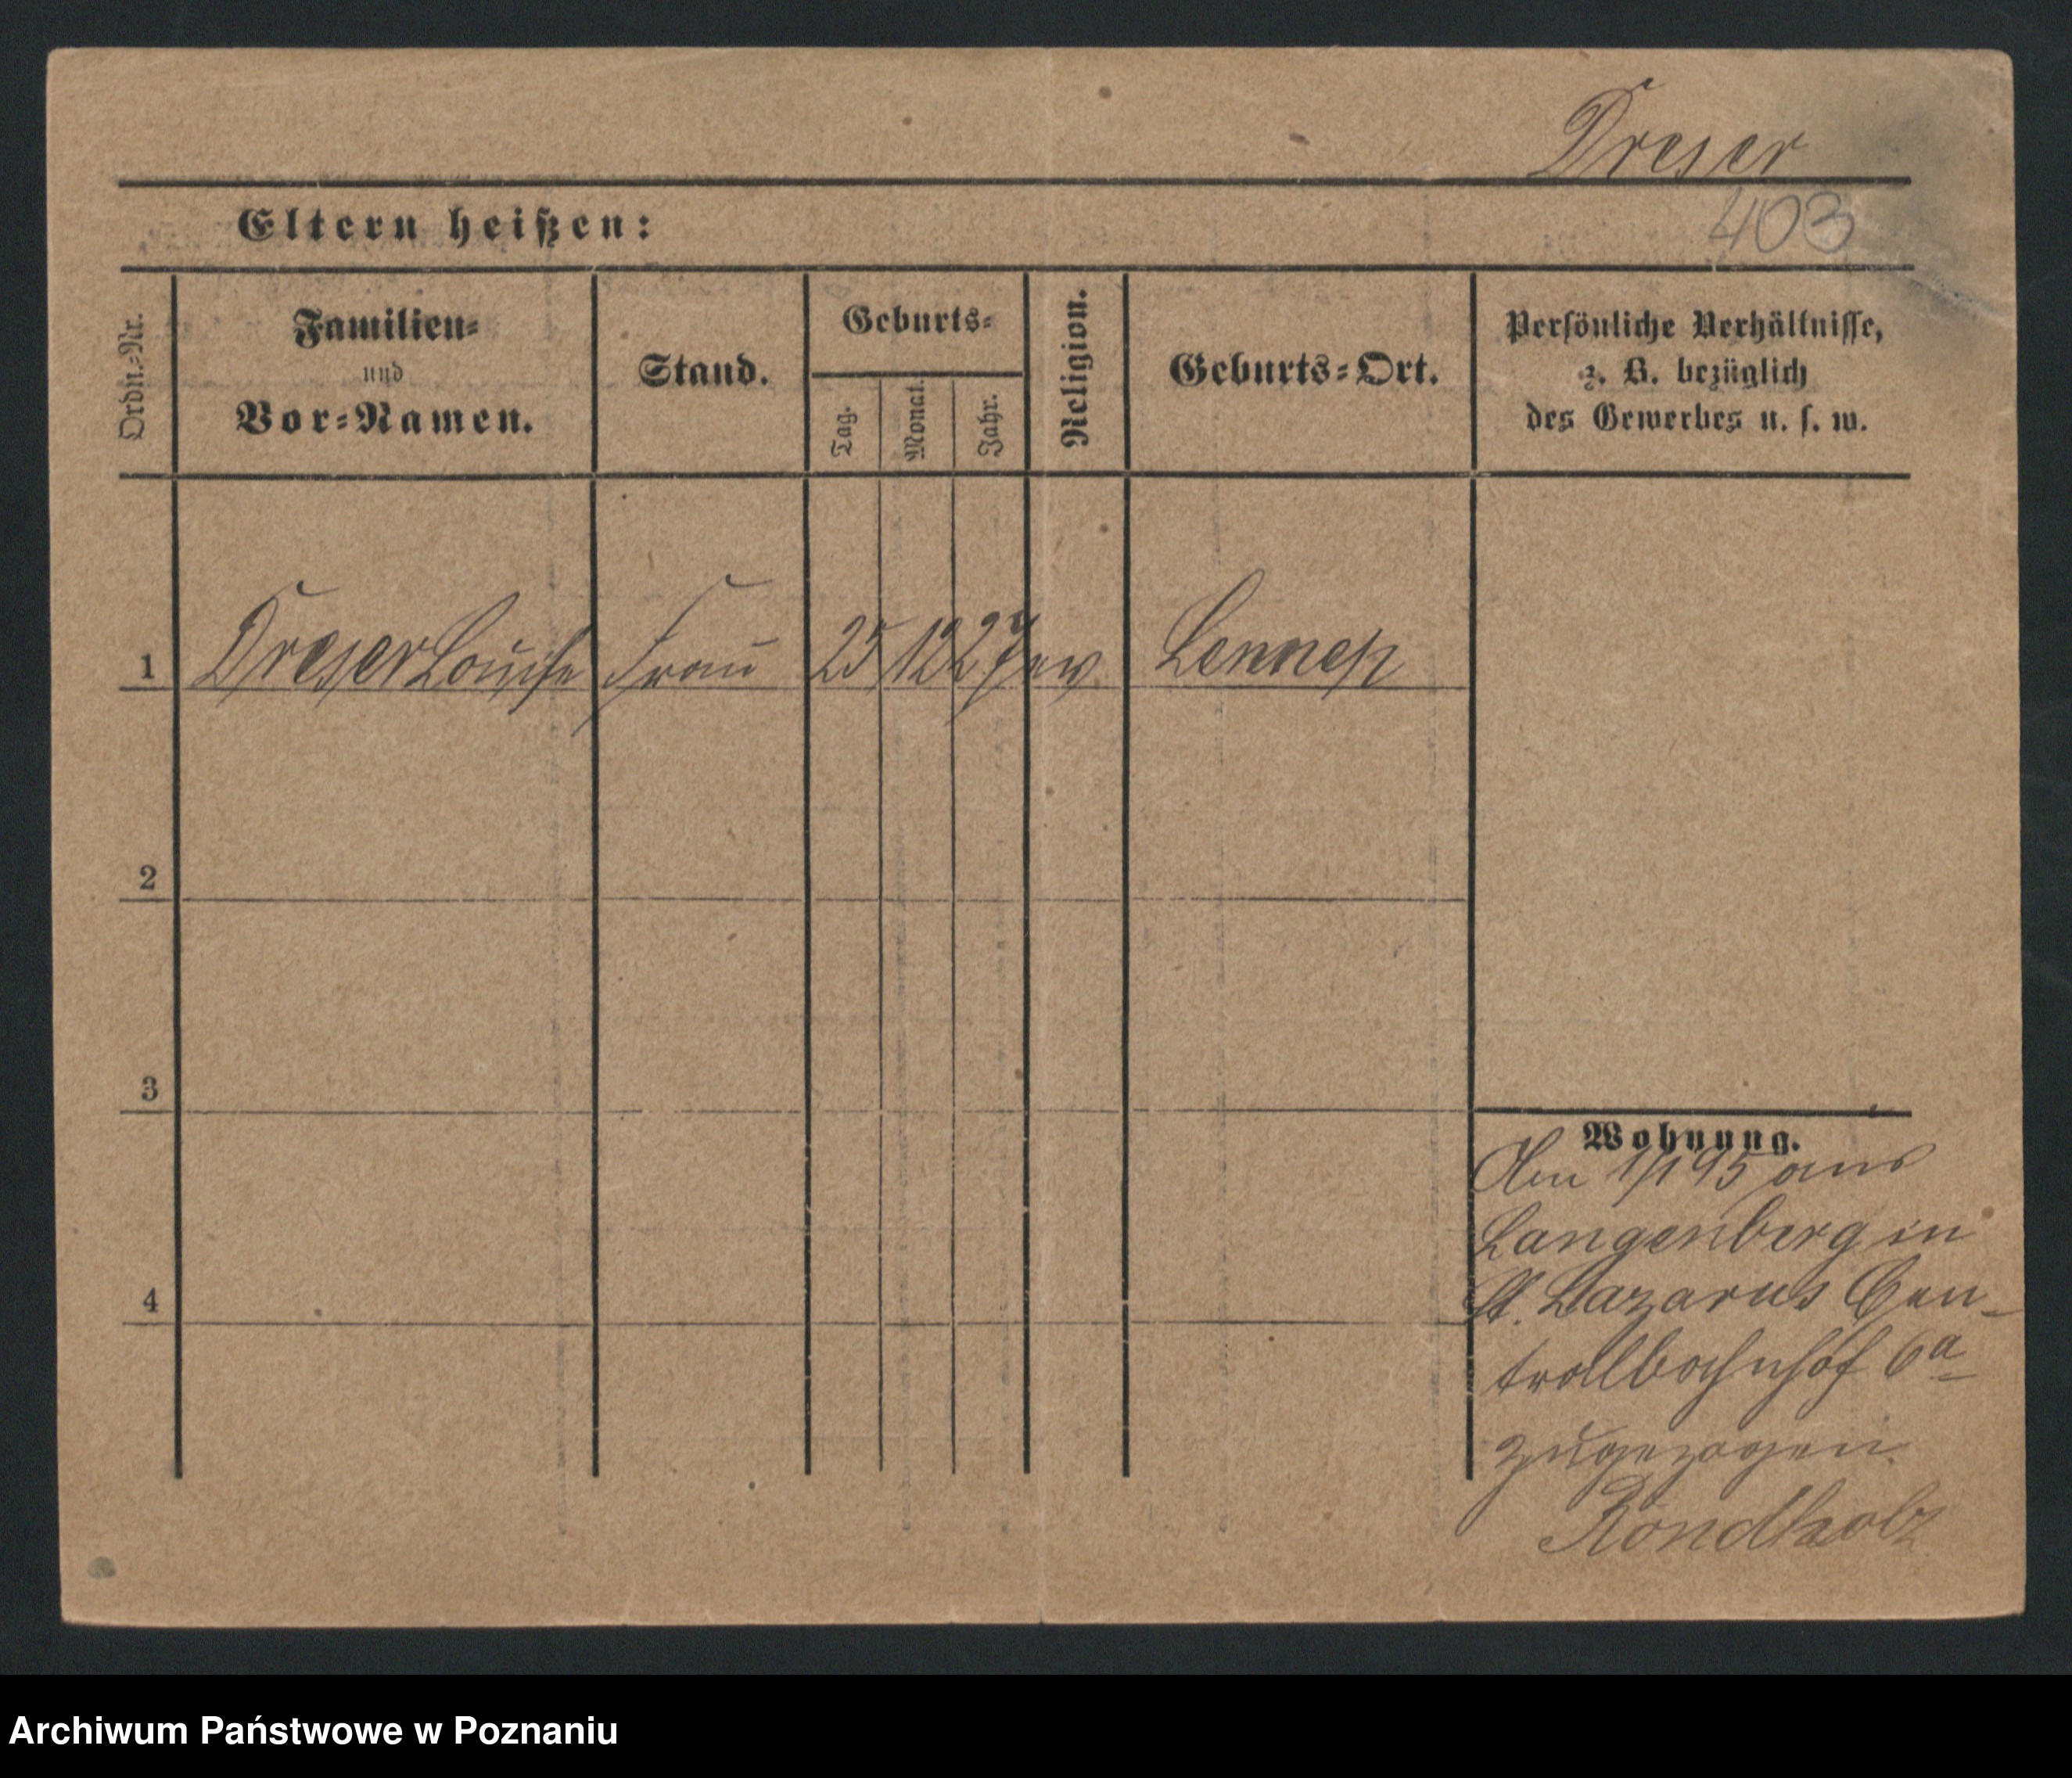 Dreser
403
Eltern heißen:
Ordn.-Nr.
Familien-
und
Vor-Namen.
Stand.
Geburts-
Tag.
Monat.
Jahr.
Religion.
Geburts-Ort.
Persönliche Verhältnisse,
z. B. bezüglich
des Gewerbes u. s. w.
1 Dreser Louise Frau 25 12 27 ev. Lennep
2
3
4
Wohnung.
Am 1/1 95 aus
Langenberg in
St. Lazarus Cen-
trallbahnhof 6a
zugezogen.
Rondholz
Archiwum Państwowe w Poznaniu